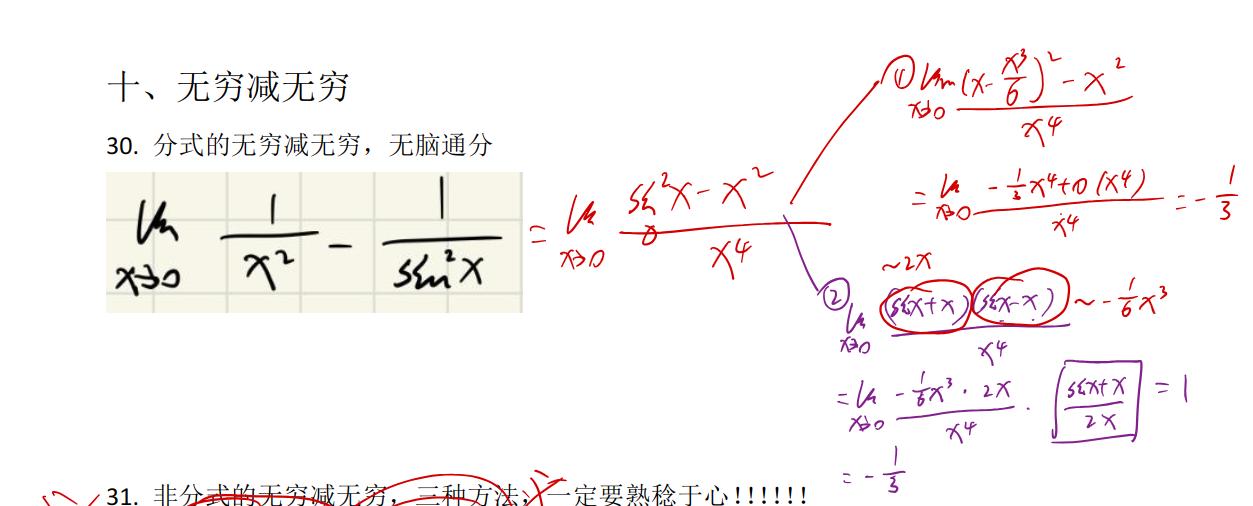 十、无穷减无穷
30. 分式的无穷减无穷，无脑通分
lim_{x→0} 1/x² − 1/sin²x = lim_{x→0} (sin²x − x²)/x⁴
① lim_{x→0} ((x − x³/6)² − x²)/x⁴
= lim_{x→0} (−1/3 x⁴ + o(x⁴))/x⁴ = −1/3
~2x
② lim_{x→0} (sinx+x)(sinx−x)/x⁴ ~ −1/6 x³
= lim_{x→0} (−1/6 x³ · 2x)/x⁴ · (sinx+x)/2x = 1
= −1/3
31. 非分式的无穷减无穷，三种方法，一定要熟稔于心！！！！！！